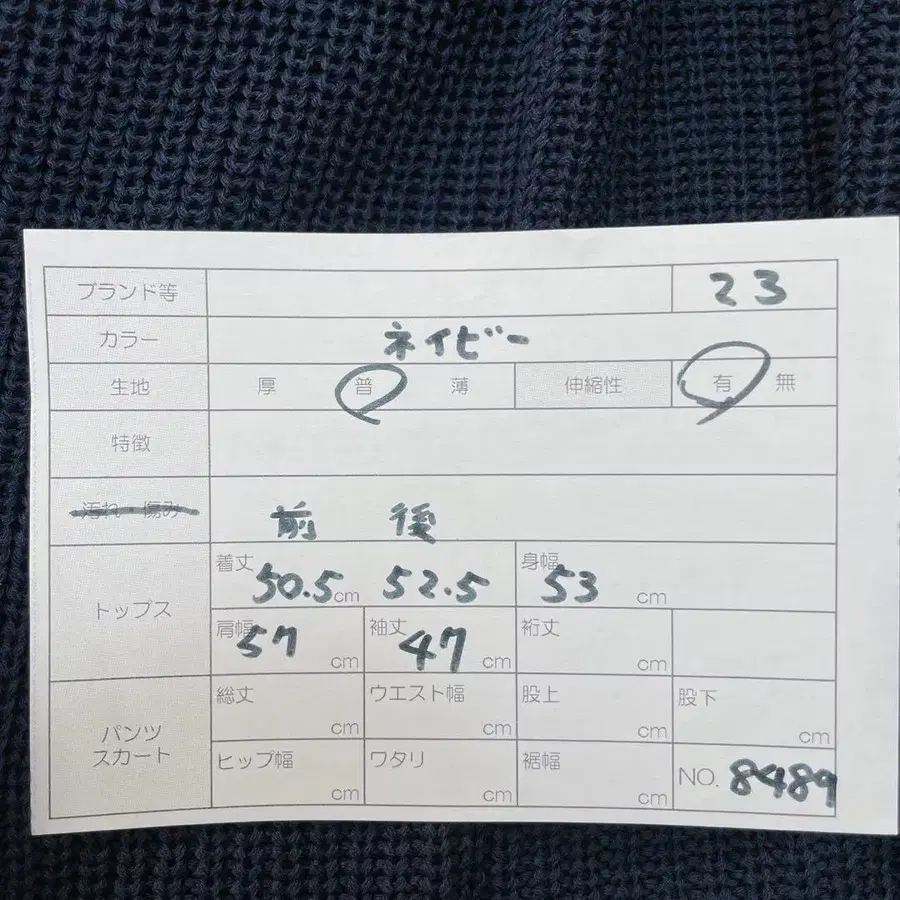 ブランド等 23
カラー ネイビー
生地 厚 普 薄 伸縮性 有 無
特徴
汚れ・傷み
前 後
トップス 着丈 50.5cm 52.5 身幅 53 cm
肩幅 57 cm 袖丈 47 cm 裄丈 cm
パンツ
スカート
総丈 cm ウエスト幅 cm 股上 cm 股下 cm
ヒップ幅 cm ワタリ cm 裾幅 cm NO. 8489